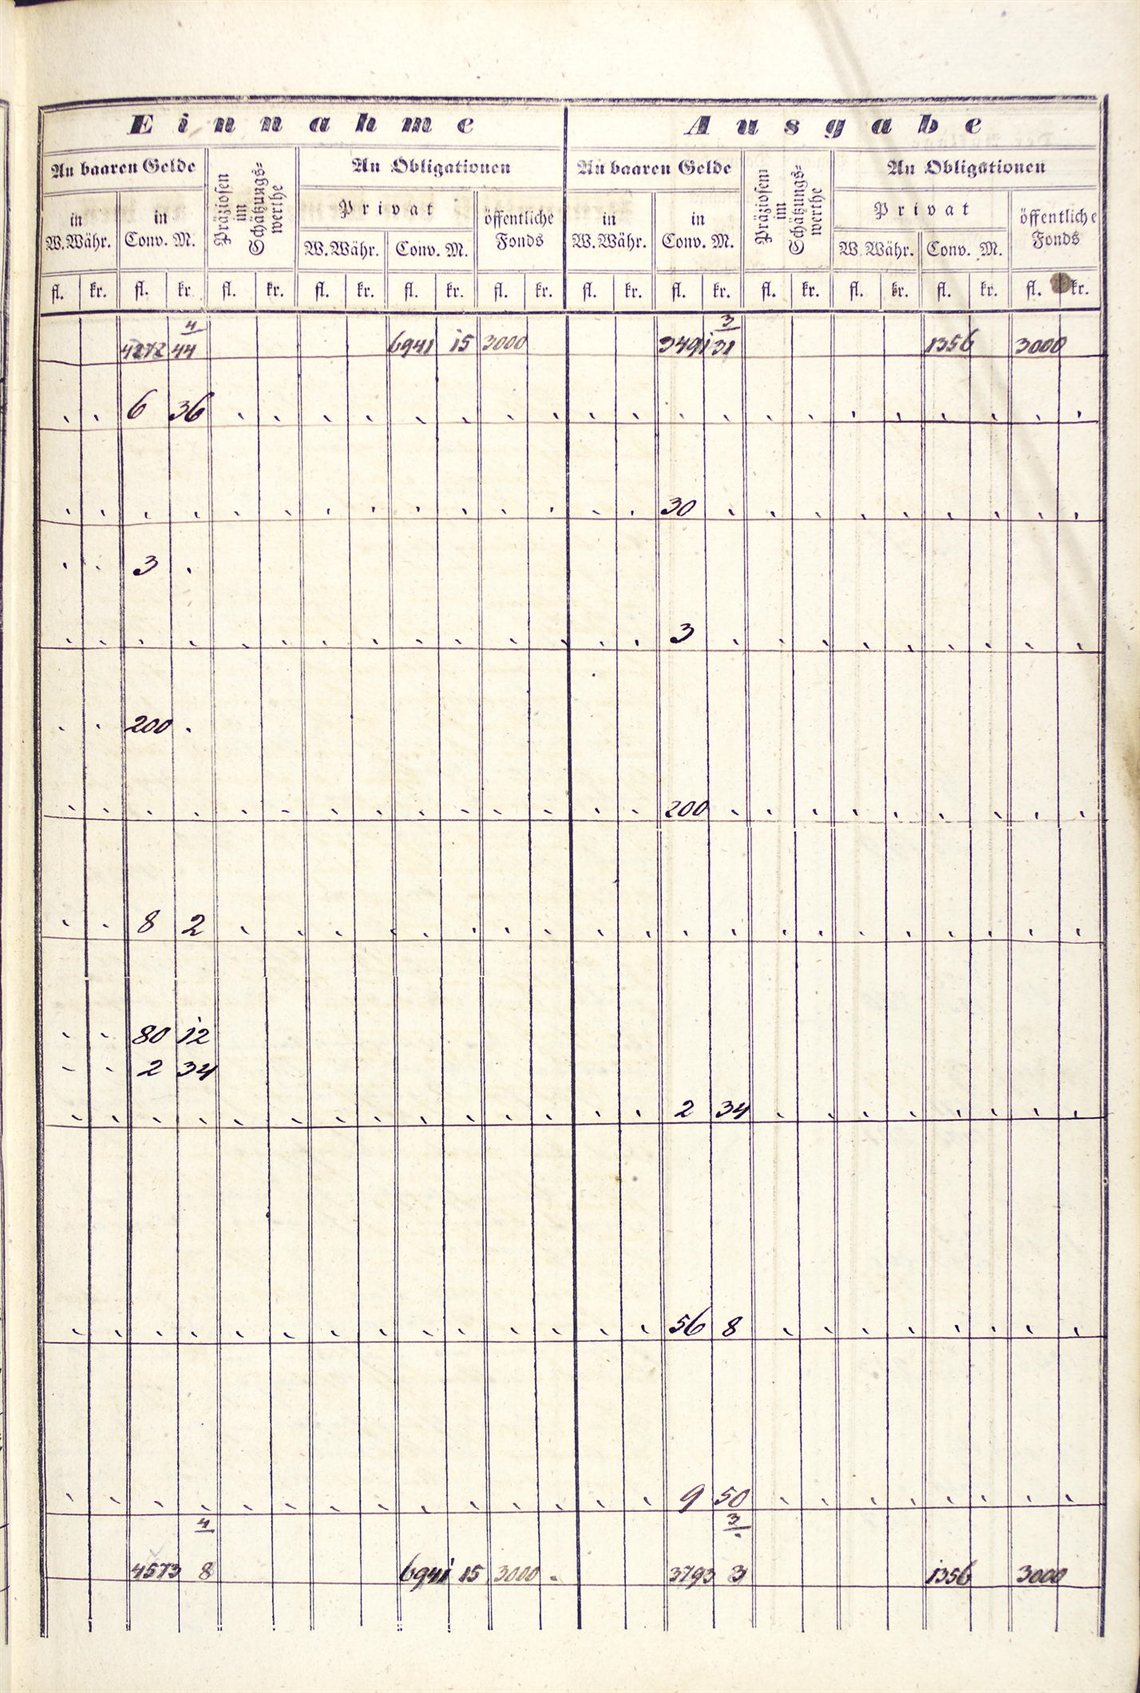 Einnahme Ausgabe
An baaren Gelde Präziosen im Schätzungs= werthe An Obligationen An baaren Gelde Präziosen im Schätzungs= werthe An Obligationen
in W.Währ. in Conv. M. Privat öffentliche Fonds in W.Währ. in Conv. M. Privat öffentliche Fonds
W.Währ. Conv. M. W.Währ. Conv. M.
fl. kr. fl. kr. fl. kr. fl. kr. fl. kr. fl. kr. fl. kr. fl. kr. fl. kr. fl. kr. fl. kr. fl. kr.
4 3
4272 44 6941 15 3000 3491 31 1356 3000
6 36
30
3
3
200
200
8 2
80 12
2 34
2 34
56 8
9 50
4 3
4573 8 6941 15 3000 3793 3 1356 3000